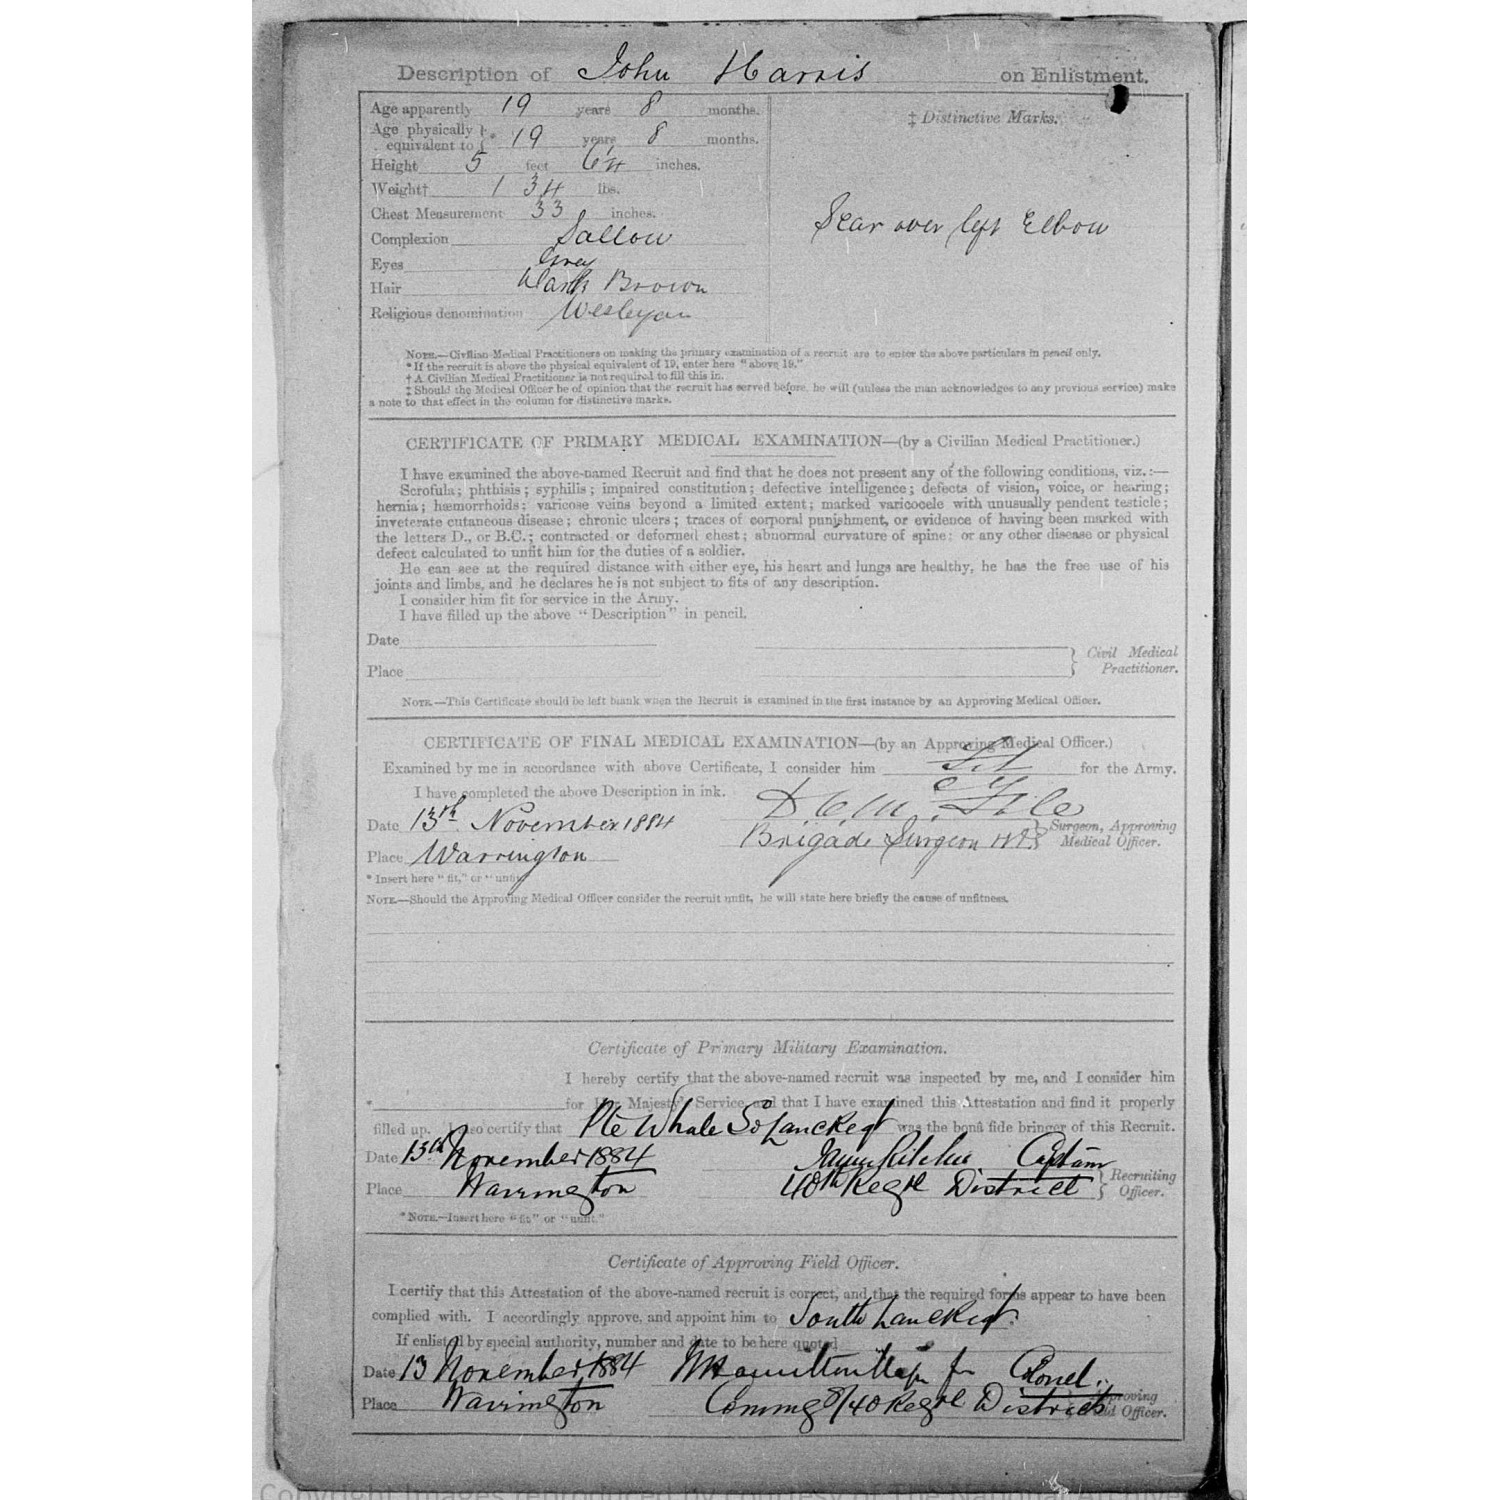 Description of John Harris on Enlistment.
Age apparently 19 years 8 months.
Age physically equivalent to }* 19 years 8 months.
Height 5 feet 6¼ inches.
Weight† 134 lbs.
Chest Measurement 33 inches.
Complexion Sallow
Eyes Grey
Hair Dark Brown
Religious denomination Wesleyan
‡ Distinctive Marks.
Scar over left Elbow
NOTE.—Civilian Medical Practitioners on making the primary examination of a recruit are to enter the above particulars in pencil only.
* If the recruit is above the physical equivalent of 19, enter here "above 19."
† A Civilian Medical Practitioner is not required to fill this in.
‡ Should the Medical Officer be of opinion that the recruit has served before, he will (unless the man acknowledges to any previous service) make
a note to that effect in the column for distinctive marks.
CERTIFICATE OF PRIMARY MEDICAL EXAMINATION—(by a Civilian Medical Practitioner.)
I have examined the above-named Recruit and find that he does not present any of the following conditions, viz.:—
Scrofula; phthisis; syphilis; impaired constitution; defective intelligence; defects of vision, voice, or hearing;
hernia; hæmorrhoids; varicose veins beyond a limited extent; marked varicocele with unusually pendent testicle;
inveterate cutaneous disease; chronic ulcers; traces of corporal punishment, or evidence of having been marked with
the letters D., or B.C.; contracted or deformed chest; abnormal curvature of spine; or any other disease or physical
defect calculated to unfit him for the duties of a soldier.
He can see at the required distance with either eye, his heart and lungs are healthy, he has the free use of his
joints and limbs, and he declares he is not subject to fits of any description.
I consider him fit for service in the Army.
I have filled up the above "Description" in pencil.
Date
Place
} Civil Medical Practitioner.
NOTE.—This Certificate should be left blank when the Recruit is examined in the first instance by an Approving Medical Officer.
CERTIFICATE OF FINAL MEDICAL EXAMINATION—(by an Approving Medical Officer.)
Examined by me in accordance with above Certificate, I consider him Fit for the Army.
I have completed the above Description in ink.
Date 13th November 1884
Brigade Surgeon } Surgeon, Approving Medical Officer.
Place Warrington
* Insert here "fit," or "unfit"
NOTE.—Should the Approving Medical Officer consider the recruit unfit, he will state here briefly the cause of unfitness.
Certificate of Primary Military Examination.
I hereby certify that the above-named recruit was inspected by me, and I consider him
* for Her Majesty's Service, and that I have examined this Attestation and find it properly
filled up. I also certify that Pte Whale So Lanc Regt was the bonâ fide bringer of this Recruit.
Date 13th November 1884 Captain
Place Warrington 40th Regtl District } Recruiting Officer.
*NOTE.—Insert here "fit" or "unfit."
Certificate of Approving Field Officer.
I certify that this Attestation of the above-named recruit is correct, and that the required forms appear to have been
complied with. I accordingly approve, and appoint him to South Lanc Regt.
If enlisted by special authority, number and date to be here quoted
Date 13 November 1884 Hamilton Major for Colonel
Place Warrington Commg 8/40 Regtl District Approving Field Officer.
Copyright Images reproduced by courtesy of The National Archives